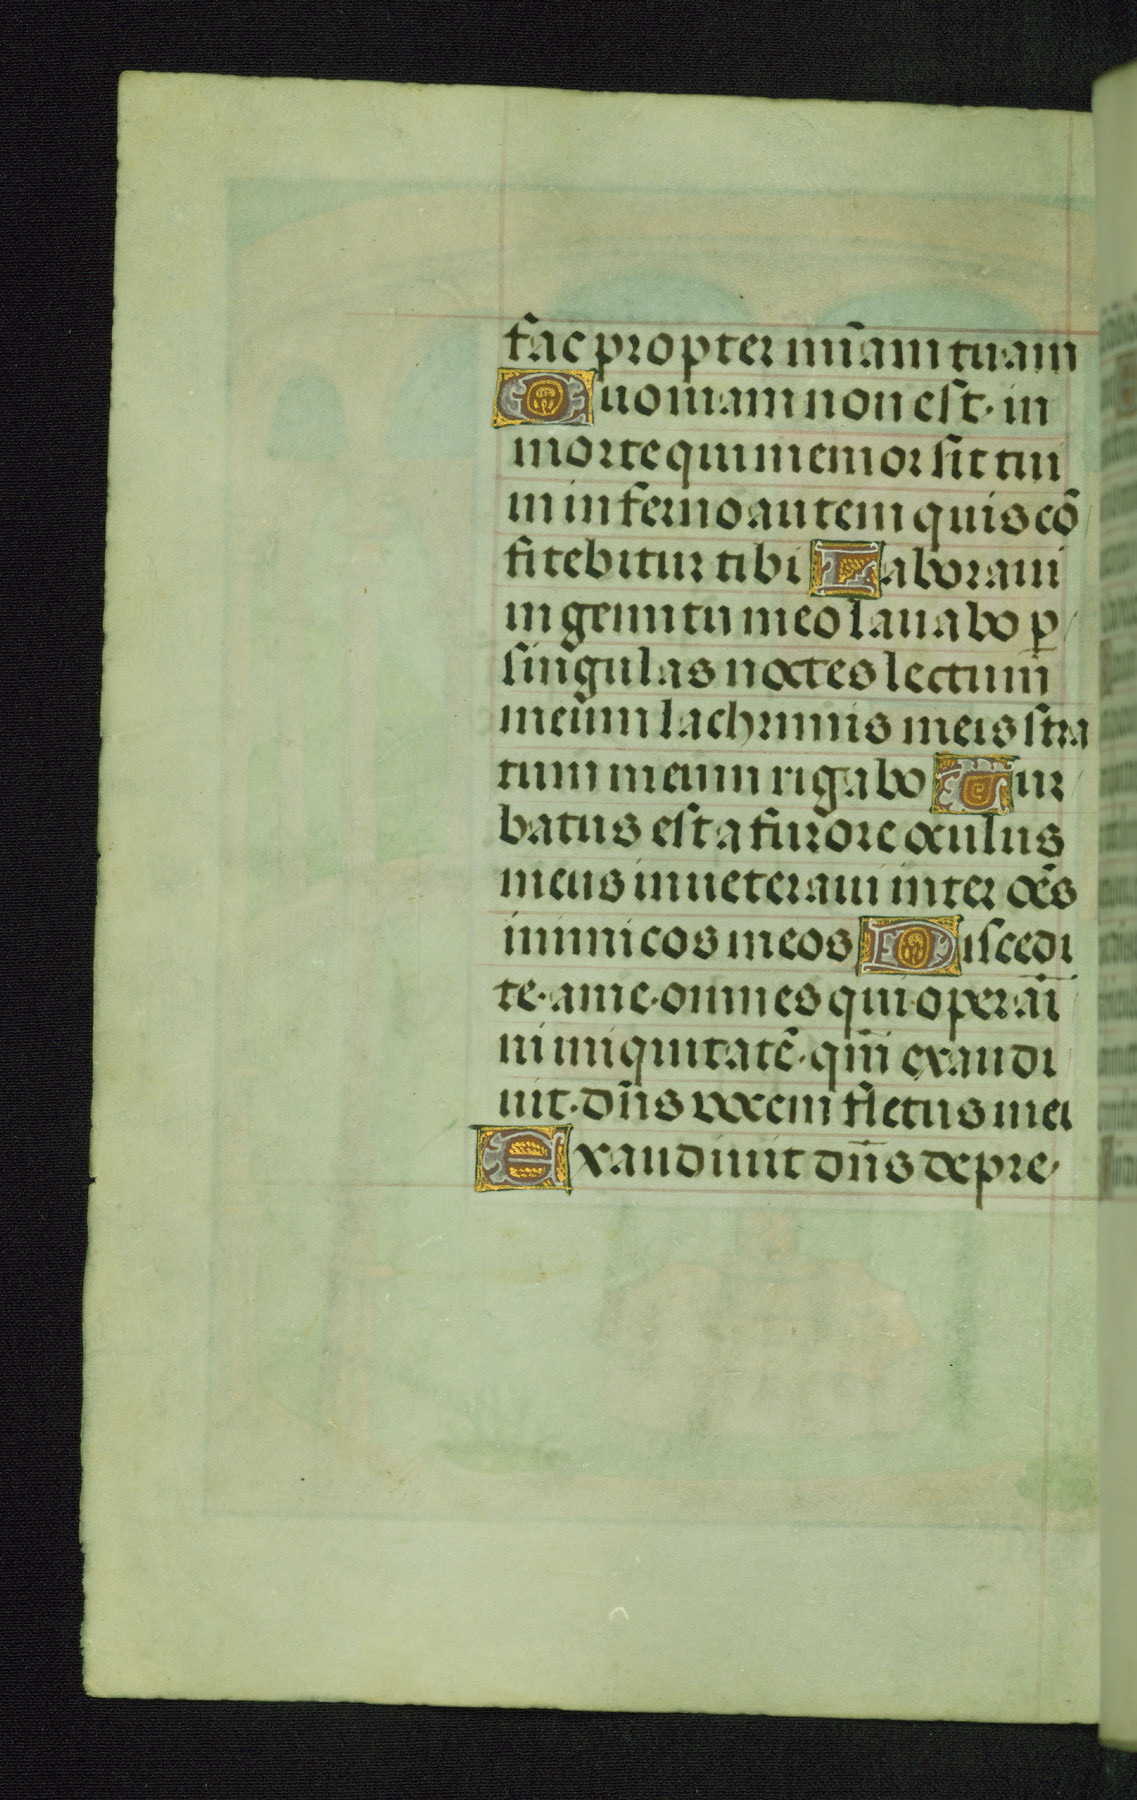 fac propter mīam tuam
Quoniam non est· in
morte qui memor sit tui
in inferno autem quis cō
fitebitur tibi Laboraui
in gemitu meo lauabo ꝑ
singulas noctes lectum
meum lachrimis meis stra
tum meum rigabo Tur
batus est a furore oculus
meus inueteraui inter oēs
inimicos meos Discedi
te· a me· omnes qui operāi
ni iniquitatē· qm̄ exaudi
uit· dn̄s uocem fletus mei
Exaudiuit dn̄s depre